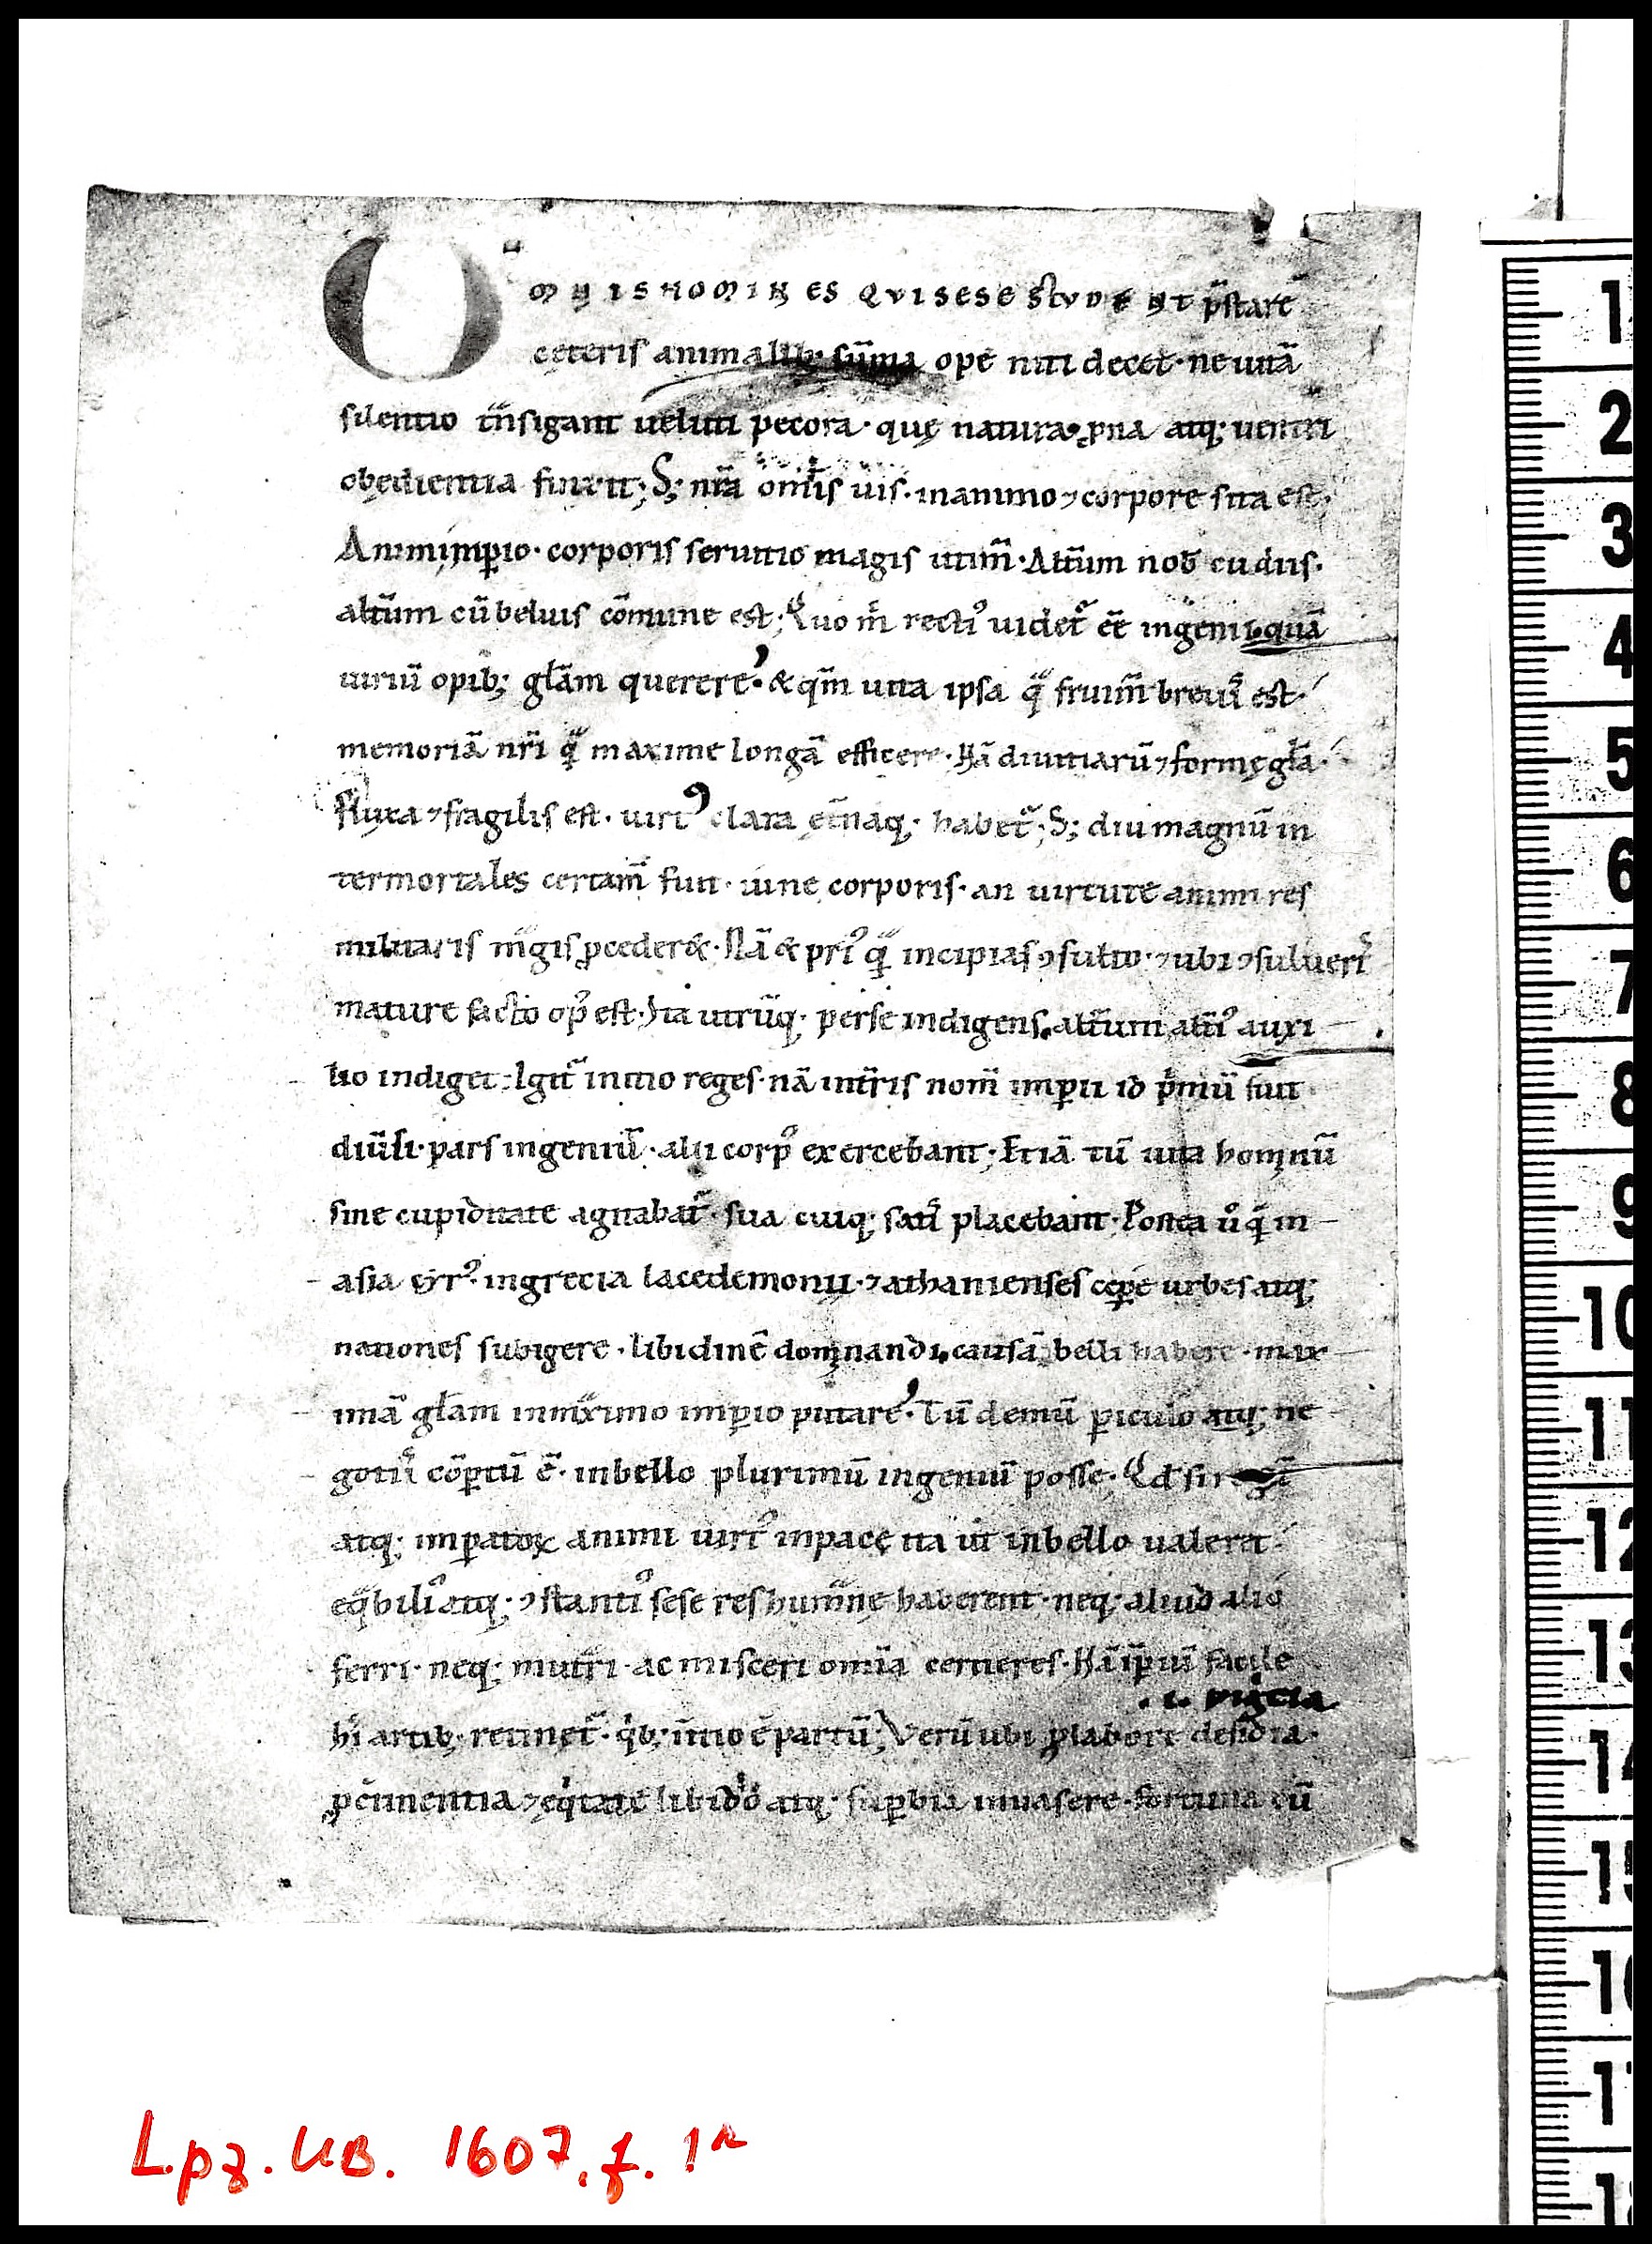 OMNIS HOMINES QVI SESE STVDENT p̄stare
ceteris animalib; sūma ope niti decet · ne uitā
silentio t̄nsigant ueluti pecora · quę natura ꝓna atq; uentri
obędientia finxit; S; nr̄a om̄is uis · in animo ⁊ corpore sita est;
Animi imꝑio · corporis seruitio magis utim̄ · Altm̄ nob̄ cū diis ·
altm̄ cū beluis cōmune est; Quo m̄ recti᷒ uidet᷑ eē ingenii quā
uiriū opib; gl̄am querere · & qm̄ uita ipsa qͣ fruim̄ breuis est ·
memoriā nr̄i qͣ maxime longā efficere · Nā diuitiarū ⁊ formę gl̄a ·
fluxa ⁊ fragilis est · uirt᷒ clara et̄naq; habet᷑; S; diu magnū in
ter mortales certam̄ fuit · uine corporis · an uirtute animi res
militaris mͣgis ꝓceder& · Nā & pri᷒ qͣ incipias ꝯsulto · ⁊ ubi ꝯsulueri᷒
mature facto op᷒ est · Ita utrūq; per se indigens altm̄ alti᷒ auxi
lio indiget · Igit᷑ initio reges · nā in tr̄ris nom̄ imꝑii id pͥmū fuit
diūsi · pars ingeniū · alii corp᷒ exercebant; Etiā tū uita hominū
sine cupiditate agitabat᷑ · sua cuiq; satis placebant; Postea ů qͣ in
asia cyr᷒ · in grecia lacedemonii · ⁊ athanienses cepe urbes atq;
nationes subigere · libidinē dominandi causā belli habere · max
imā gl̄am in mͣximo imꝑio putare · Tū demū ꝑiculo atq; ne
gotiis cōꝑtū ē · in bello plurimū ingeniū posse · Qd̄ si regū
atq; imꝑatoꝝ animi uirt᷒ in pace ita ut in bello ualeret
eqͣbili᷒ atq; ꝯstanti᷒ sese res humͣne haberent · neq; aliud alio
ferri · neq; mutͣri · ac misceri om̄ia cerneres · Nā iꝑiū facile
.i. pigcia
hi᷒ artib; retinet᷑ · qͥb; īitio ē partū; Verū ubi ꝓ labore desidia ·
ꝓ cōtinentia ⁊ eqͥtate libido atq; suꝑbia inuasere · fortuna cū
Lpz. UB. 1607, f. 1r
1
2
3
4
5
6
7
8
9
10
11
12
13
14